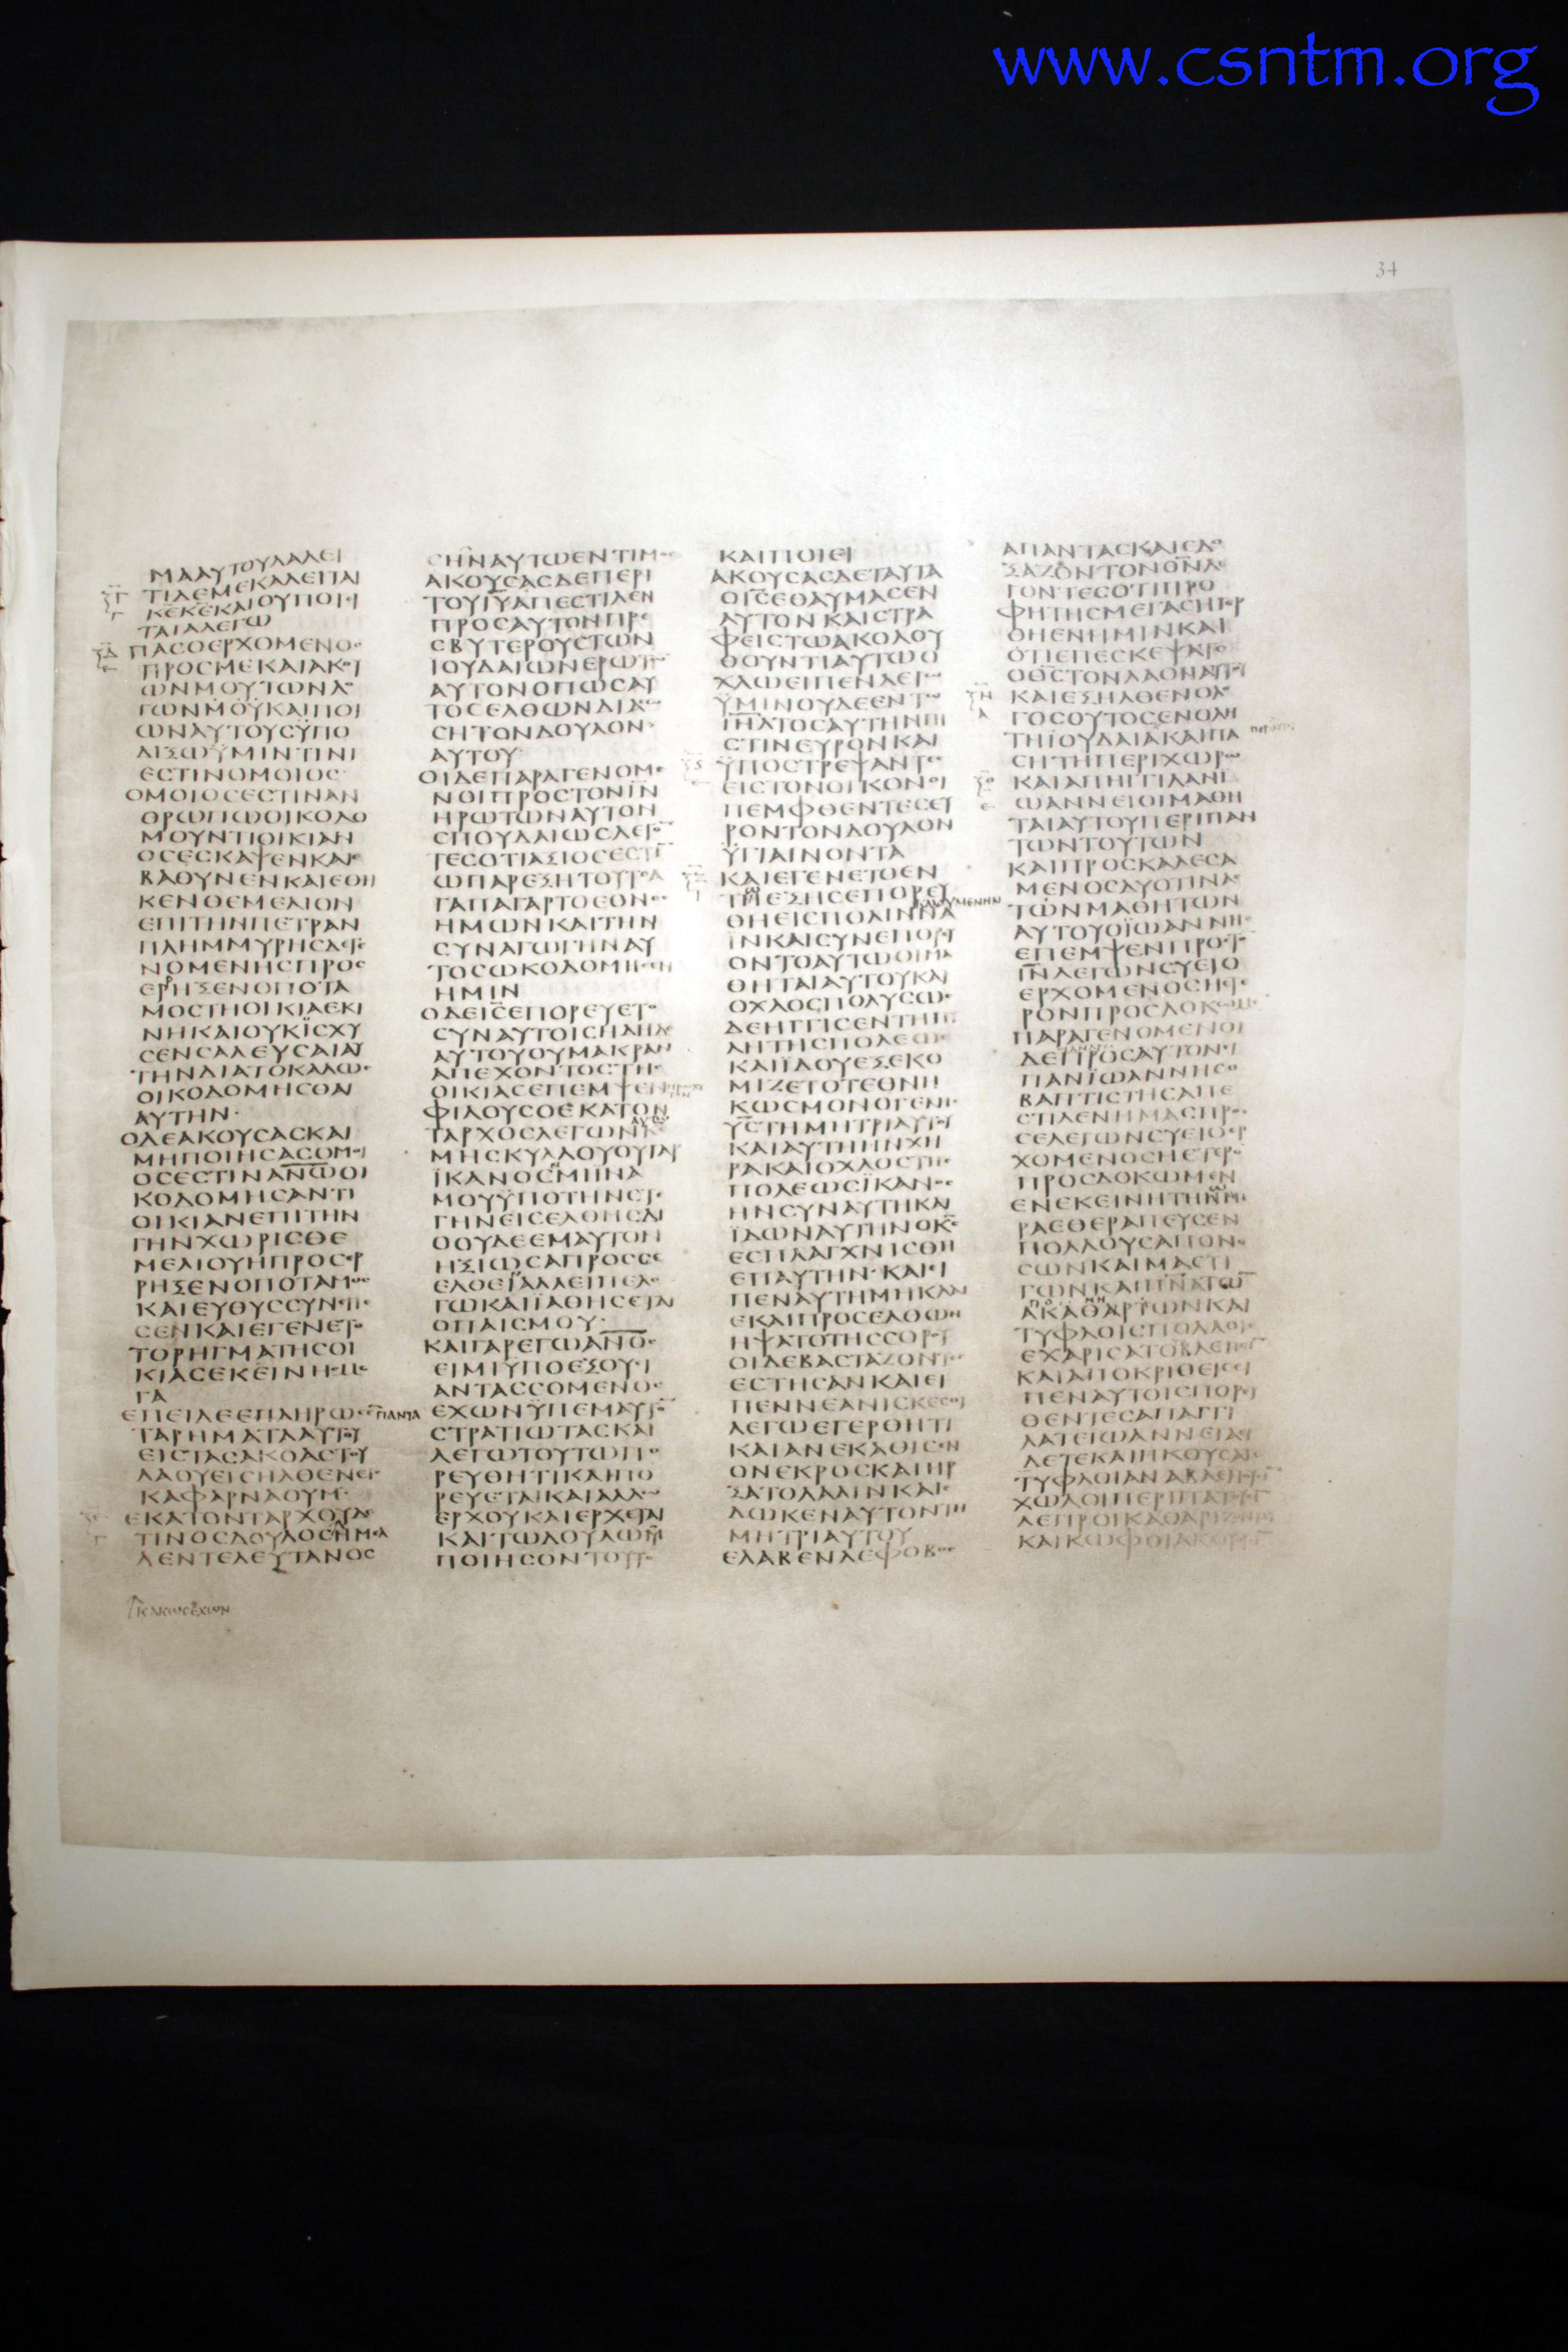 www.csntm.org
34
ΜΑΑΥΤΟΥΛΑΛΕΙ
ΤΙΔΕΜΕΚΑΛΕΙΤΑΙ
ΚΕΚΕΚΑΙΟΥΠΟΙΕΙ
ΤΑΙΑΛΕΓΩ
ΠΑСΟΕΡΧΟΜΕΝΟС
ΠΡΟСΜΕΚΑΙΑΚΟΥ
ΩΝΜΟΥΤΩΝΛΟ
ΓΩΝΜΟΥΚΑΙΠΟΙ
ΩΝΑΥΤΟΥСΫΠΟ
ΔΙΞΩΫΜΙΝΤΙΝΙ
ΕСΤΙΝΟΜΟΙΟС
ΟΜΟΙΟСΕСΤΙΝΑΝ
ΘΡΩΠΩΟΙΚΟΔΟ
ΜΟΥΝΤΙΟΙΚΙΑΝ
ΟСΕСΚΑΨΕΝΚΑΙΕ
ΒΑΘΥΝΕΝΚΑΙΕΘΗ
ΚΕΝΘΕΜΕΛΙΟΝ
ΕΠΙΤΗΝΠΕΤΡΑΝ
ΠΛΗΜΜΥΡΗСΔΕΓΕ
ΝΟΜΕΝΗСΠΡΟС
ΕΡΗΞΕΝΟΠΟΤΑ
ΜΟСΤΗΟΙΚΙΑΕΚΙ
ΝΗΚΑΙΟΥΚΪСΧΥ
СΕΝСΑΛΕΥСΑΙΑΥ
ΤΗΝΔΙΑΤΟΚΑΛΩС
ΟΙΚΟΔΟΜΗСΘΑΙ
ΑΥΤΗΝ
ΟΔΕΑΚΟΥСΑСΚΑΙ
ΜΗΠΟΙΗСΑСΟΜΟΙ
ΟСΕСΤΙΝΑΝΩΟΙ
ΚΟΔΟΜΗСΑΝΤΙ
ΟΙΚΙΑΝΕΠΙΤΗΝ
ΓΗΝΧΩΡΙСΘΕ
ΜΕΛΙΟΥΗΠΡΟСΕΡ
ΡΗΞΕΝΟΠΟΤΑΜΟС
ΚΑΙΕΥΘΥССΥΝΕΠΕ
СΕΝΚΑΙΕΓΕΝΕΤΟ
ΤΟΡΗΓΜΑΤΗСΟΙ
ΚΙΑСΕΚΕΙΝΗСΜΕ
ΓΑ
ΕΠΕΙΔΕΕΠΛΗΡΩСΕ ΠΑΝΤΑ
ΤΑΡΗΜΑΤΑΑΥΤΟΥ
ΕΙСΤΑСΑΚΟΑСΤΟΥ
ΛΑΟΥΕΙСΗΛΘΕΝΕΙС
ΚΑΦΑΡΝΑΟΥΜ
ΕΚΑΤΟΝΤΑΡΧΟΥΔΕ
ΤΙΝΟСΔΟΥΛΟСΗΜΕΛ
ΛΕΝΤΕΛΕΥΤΑΝΟС
ΚΑΚΩСΕΧΩΝ
СΗΝΑΥΤΩΕΝΤΙΜΟС
ΑΚΟΥСΑСΔΕΠΕΡΙ
ΤΟΥΙΥΑΠΕСΤΙΛΕΝ
ΠΡΟСΑΥΤΟΝΠΡΕ
СΒΥΤΕΡΟΥСΤΩΝ
ΙΟΥΔΑΙΩΝΕΡΩΤΩ
ΑΥΤΟΝΟΠΩСΑΥ
ΤΟСΕΛΘΩΝΔΙΑСΩ
СΗΤΟΝΔΟΥΛΟΝ
ΑΥΤΟΥ
ΟΙΔΕΠΑΡΑΓΕΝΟΜΕ
ΝΟΙΠΡΟСΤΟΝΙΝ
ΗΡΩΤΩΝΑΥΤΟΝ
СΠΟΥΔΑΙΩСΛΕΓΟ
ΤΕСΟΤΙΑΞΙΟСΕСΤΙ
ΩΠΑΡΕΞΗΤΟΥΤΟΑ
ΓΑΠΑΓΑΡΤΟΕΘΝΟС
ΗΜΩΝΚΑΙΤΗΝ
СΥΝΑΓΩΓΗΝΑΥ
ΤΟСΩΚΟΔΟΜΗСΕΝ
ΗΜΙΝ
ΟΔΕΙСΕΠΟΡΕΥΕΤΟ
СΥΝΑΥΤΟΙСΗΔΗΔΕ
ΑΥΤΟΥΟΥΜΑΚΡΑΝ
ΑΠΕΧΟΝΤΟСΤΗС
ΟΙΚΙΑСΕΠΕΜΨΕΝ
ΦΙΛΟΥСΟΕΚΑΤΟΝ
ΤΑΡΧΟСΛΕΓΩΝΚΕ
ΜΗСΚΥΛΛΟΥΟΥΓΑΡ
ΪΚΑΝΟСΜΙΪΝΑ
ΜΟΥΫΠΟΤΗΝСΤΕ
ΓΗΝΕΙСΕΛΘΗСΑΙ
ΟΟΥΔΕΕΜΑΥΤΟΝ
ΗΞΙΩСΑΠΡΟССΕ
ΕΛΘΕΙΑΛΛΕΙΠΕΛΟ
ΓΩΚΑΙΪΑΘΗСΕΤΑΙ
ΟΠΑΙСΜΟΥ
ΚΑΙΓΑΡΕΓΩΑΝΟС
ΕΙΜΙΥΠΟΕΞΟΥСΙ
ΑΝΤΑССΟΜΕΝΟС
ΕΧΩΝΥΠΕΜΑΥΤΟ
СΤΡΑΤΙΩΤΑСΚΑΙ
ΛΕΓΩΤΟΥΤΩΠΟ
ΡΕΥΘΗΤΙΚΑΙΠΟ
ΡΕΥΕΤΑΙΚΑΙΑΛΛΩ
ΕΡΧΟΥΚΑΙΕΡΧΕΤΑΙ
ΚΑΙΤΩΔΟΥΛΩΜΟΥ
ΠΟΙΗСΟΝΤΟΥΤΟ
ΚΑΙΠΟΙΕΙ
ΑΚΟΥСΑСΔΕΤΑΥΤΑ
ΟΙСΕΘΑΥΜΑСΕΝ
ΑΥΤΟΝΚΑΙСΤΡΑ
ΦΕΙСΤΩΑΚΟΛΟΥ
ΘΟΥΝΤΙΑΥΤΩΟ
ΧΛΩΕΙΠΕΝΛΕΓΩ
ΫΜΙΝΟΥΔΕΕΝΤΩ
ΙΗΛΤΟСΑΥΤΗΝΠΙ
СΤΙΝΕΥΡΟΝΚΑΙ
ΫΠΟСΤΡΕΨΑΝΤΕС
ΕΙСΤΟΝΟΙΚΟΝΟΙ
ΠΕΜΦΘΕΝΤΕСΕΥ
ΡΟΝΤΟΝΔΟΥΛΟΝ
ΫΓΙΑΙΝΟΝΤΑ
ΚΑΙΕΓΕΝΕΤΟΕΝ
ΤΗΕΞΗСΕΠΟΡΕΥ
ΘΗΕΙСΠΟΛΙΝΝΑ
ΪΝΚΑΙСΥΝΕΠΟΡΕΥ
ΟΝΤΟΑΥΤΩΟΙΜΑ
ΘΗΤΑΙΑΥΤΟΥΚΑΙ
ΟΧΛΟСΠΟΛΥСΩС
ΔΕΗΓΓΙСΕΝΤΗΠΥ
ΛΗΤΗСΠΟΛΕΩС
ΚΑΙΪΔΟΥΕΞΕΚΟ
ΜΙΖΕΤΟΤΕΘΝΗ
ΚΩСΜΟΝΟΓΕΝΗС
ΥСΤΗΜΗΤΡΙΑΥΤΟΥ
ΚΑΙΑΥΤΗΗΝΧΗ
ΡΑΚΑΙΟΧΛΟСΤΗС
ΠΟΛΕΩСΪΚΑΝΟС
ΗΝСΥΝΑΥΤΗΚΑΙ
ΪΔΩΝΑΥΤΗΝΟΚС
ΕСΠΛΑΓΧΝΙСΘΗ
ΕΠΑΥΤΗΝΚΑΙΕΙ
ΠΕΝΑΥΤΗΜΗΚΛΑΙ
ΕΚΑΙΠΡΟСΕΛΘΩΝ
ΗΨΑΤΟΤΗССΟΡΟΥ
ΟΙΔΕΒΑСΤΑΖΟΝΤΕС
ΕСΤΗСΑΝΚΑΙΕΙ
ΠΕΝΝΕΑΝΙСΚΕСΟΙ
ΛΕΓΩΕΓΕΡΘΗΤΙ
ΚΑΙΑΝΕΚΑΘΙСΕΝ
ΟΝΕΚΡΟСΚΑΙΗΡ
ΞΑΤΟΛΑΛΙΝΚΑΙΕ
ΔΩΚΕΝΑΥΤΟΝΤΗ
ΜΗΤΡΙΑΥΤΟΥ
ΕΛΑΒΕΝΔΕΦΟΒΟС
ΑΠΑΝΤΑСΚΑΙΕΔΟ
ΞΑΖΟΝΤΟΝΘΝΛΕ
ΓΟΝΤΕСΟΤΙΠΡΟ
ΦΗΤΗСΜΕΓΑСΗΓΕΡ
ΘΗΕΝΗΜΙΝΚΑΙ
ΟΤΙΕΠΕСΚΕΨΑΤΟ
ΟΘСΤΟΝΛΑΟΝΑΥΤΟΥ
ΚΑΙΕΞΗΛΘΕΝΟΛΟ
ΓΟСΟΥΤΟСΕΝΟΛΗ
ΤΗΪΟΥΔΑΙΑΚΑΙΠΑ
СΗΤΗΠΕΡΙΧΩΡΩ
ΚΑΙΑΠΗΓΓΙΛΑΝΙ
ΩΑΝΝΕΙΟΙΜΑΘΗ
ΤΑΙΑΥΤΟΥΠΕΡΙΠΑΝ
ΤΩΝΤΟΥΤΩΝ
ΚΑΙΠΡΟСΚΑΛΕСΑ
ΜΕΝΟСΔΥΟΤΙΝΑС
ΤΩΝΜΑΘΗΤΩΝ
ΑΥΤΟΥΟΪΩΑΝΝΗС
ΕΠΕΜΨΕΝΠΡΟСΤΟ
ΙΝΛΕΓΩΝСΥΕΙΟ
ΕΡΧΟΜΕΝΟСΗΕΤΕ
ΡΟΝΠΡΟСΔΟΚΩΜΕ
ΠΑΡΑΓΕΝΟΜΕΝΟΙ
ΔΕΠΡΟСΑΥΤΟΝΕΙ
ΠΑΝΪΩΑΝΝΗСΟ
ΒΑΠΤΙСΤΗСΑΠΕ
СΤΙΛΕΝΗΜΑСΠΡΟС
СΕΛΕΓΩΝСΥΕΙΟΕΡ
ΧΟΜΕΝΟСΗΕΤΕΡΟ
ΠΡΟСΔΟΚΩΜΕΝ
ΕΝΕΚΕΙΝΗΤΗΗΜΕ
ΡΑΕΘΕΡΑΠΕΥСΕΝ
ΠΟΛΛΟΥСΑΠΟΝΟ
СΩΝΚΑΙΜΑСΤΙ
ΓΩΝΚΑΙΠΝΑΤΩ
ΑΚΑΘΑΡΤΩΝΚΑΙ
ΤΥΦΛΟΙСΠΟΛΛΟΙС
ΕΧΑΡΙСΑΤΟΒΛΕΠΕΙ
ΚΑΙΑΠΟΚΡΙΘΕΙСΕΙ
ΠΕΝΑΥΤΟΙСΠΟΡΕΥ
ΘΕΝΤΕСΑΠΑΓΓΙ
ΛΑΤΕΙΩΑΝΝΕΙΑΕΙ
ΔΕΤΕΚΑΙΗΚΟΥСΑΤΕ
ΤΥΦΛΟΙΑΝΑΒΛΕΠΟΥ
ΧΩΛΟΙΠΕΡΙΠΑΤΟΥ
ΛΕΠΡΟΙΚΑΘΑΡΙΖΟΝΤΑΙ
ΚΑΙΚΩΦΟΙΑΚΟΥΟΥ